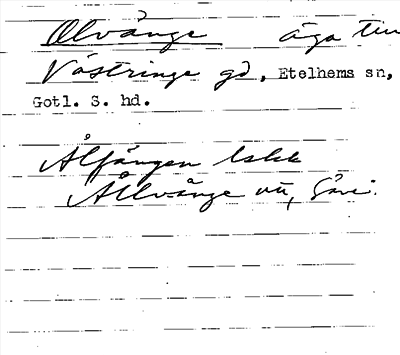 Olvänge äga till
Västringe gd, Etelhems sn,
Gotl. S. hd.
Ålfängen lskk
Ållvänge